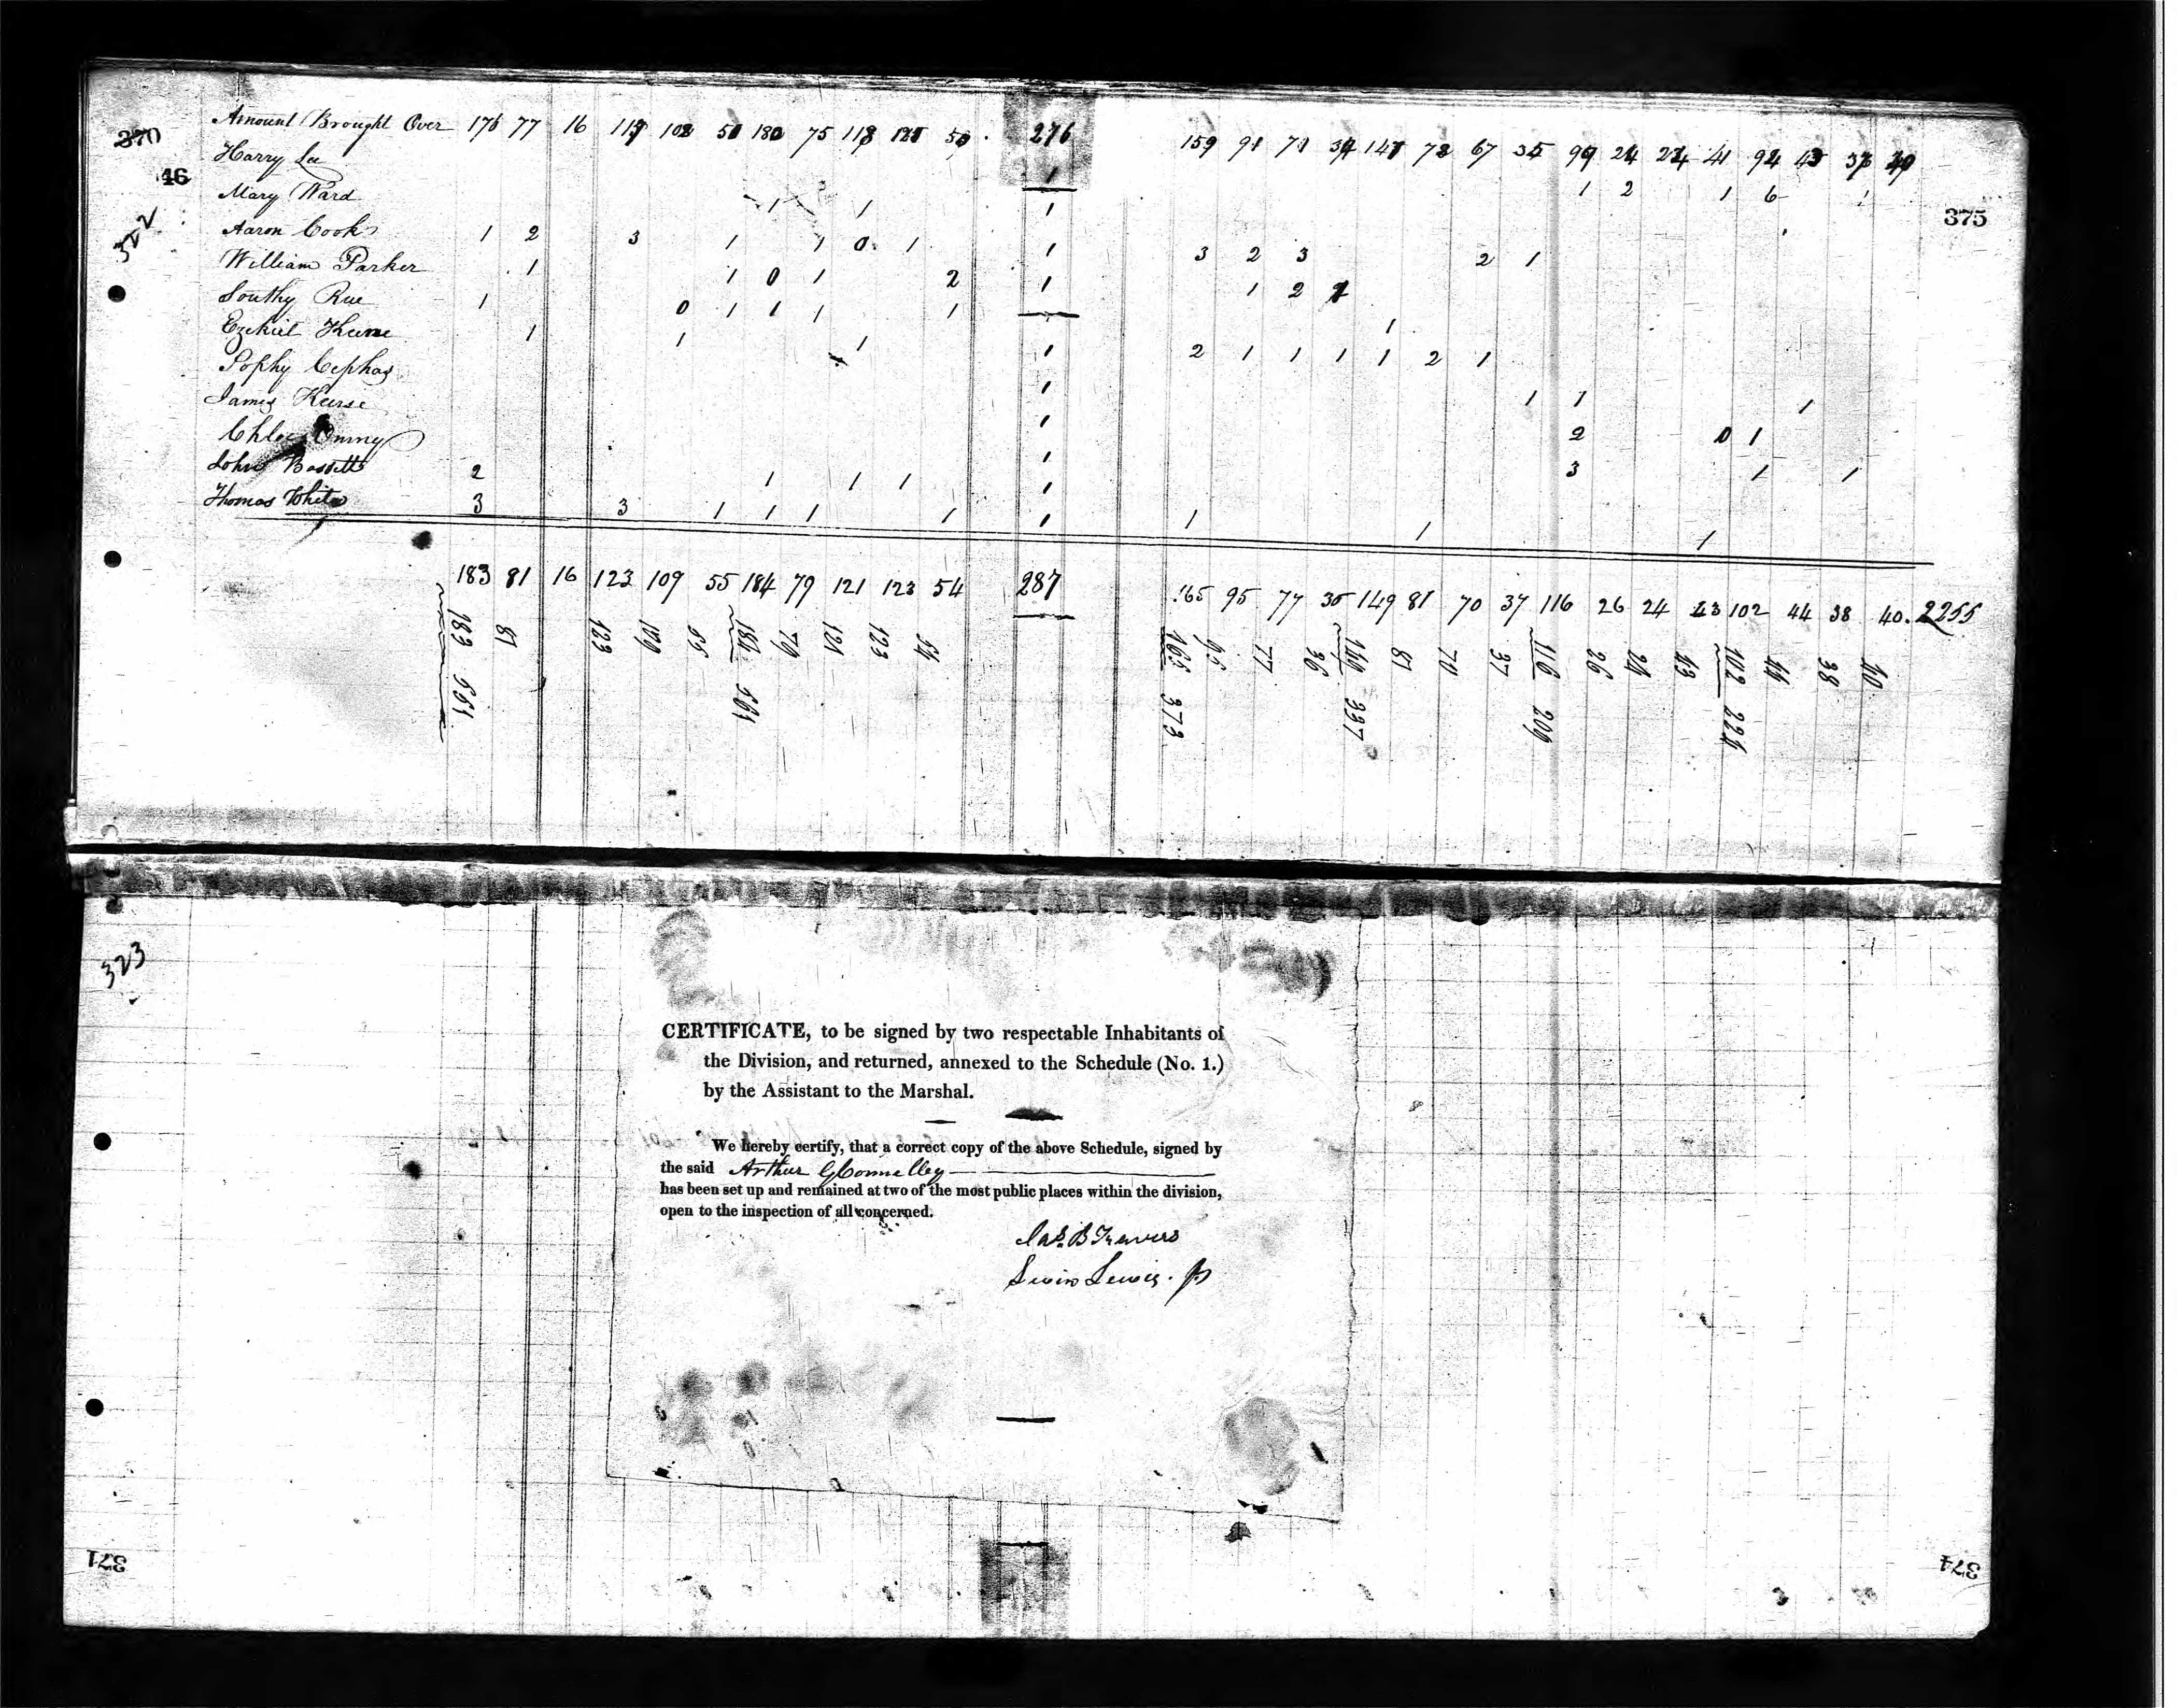 370
46
322
375
Amount Brought Over 176 77 16 117 108 50 180 75 118 121 50 276 159 91 71 34 147 78 67 35 99 24 24 41 94 43 37 39
Harry Lee 1 1 2 1 6 1
Mary Ward 1 1 1
Aaron Cook 1 2 3 1 1 0 1 1 3 2 3 2 1
William Parker 1 1 0 1 2 1 1 2
Southy Rue 1 0 1 1 1 1 1
Ezekiel Keene 1 1 1 1 2 1 1 1 1 2 1
Sophy Cephas 1
James Keese 1 1 1 1
Chloe 1 2 0 1
John Bassett 2 1 1 1 1 3 1 1
Thomas White 3 3 1 1 1 1 1 1 1 1
183 81 16 123 109 55 184 79 121 123 54 287 165 95 77 35 149 81 70 37 116 26 24 43 102 44 38 40. 2255
183 81 123 109 55 184 79 121 123 54 165 95 77 36 149 81 70 37 116 26 24 43 102 44 38 40
561 561 373 337 209
323
CERTIFICATE, to be signed by two respectable Inhabitants of
the Division, and returned, annexed to the Schedule (No. 1.)
by the Assistant to the Marshal.
We hereby certify, that a correct copy of the above Schedule, signed by
the said Arthur G Connelley
has been set up and remained at two of the most public places within the division,
open to the inspection of all concerned.
Jas. B Travers
Levin Lewis. Jr
371
374